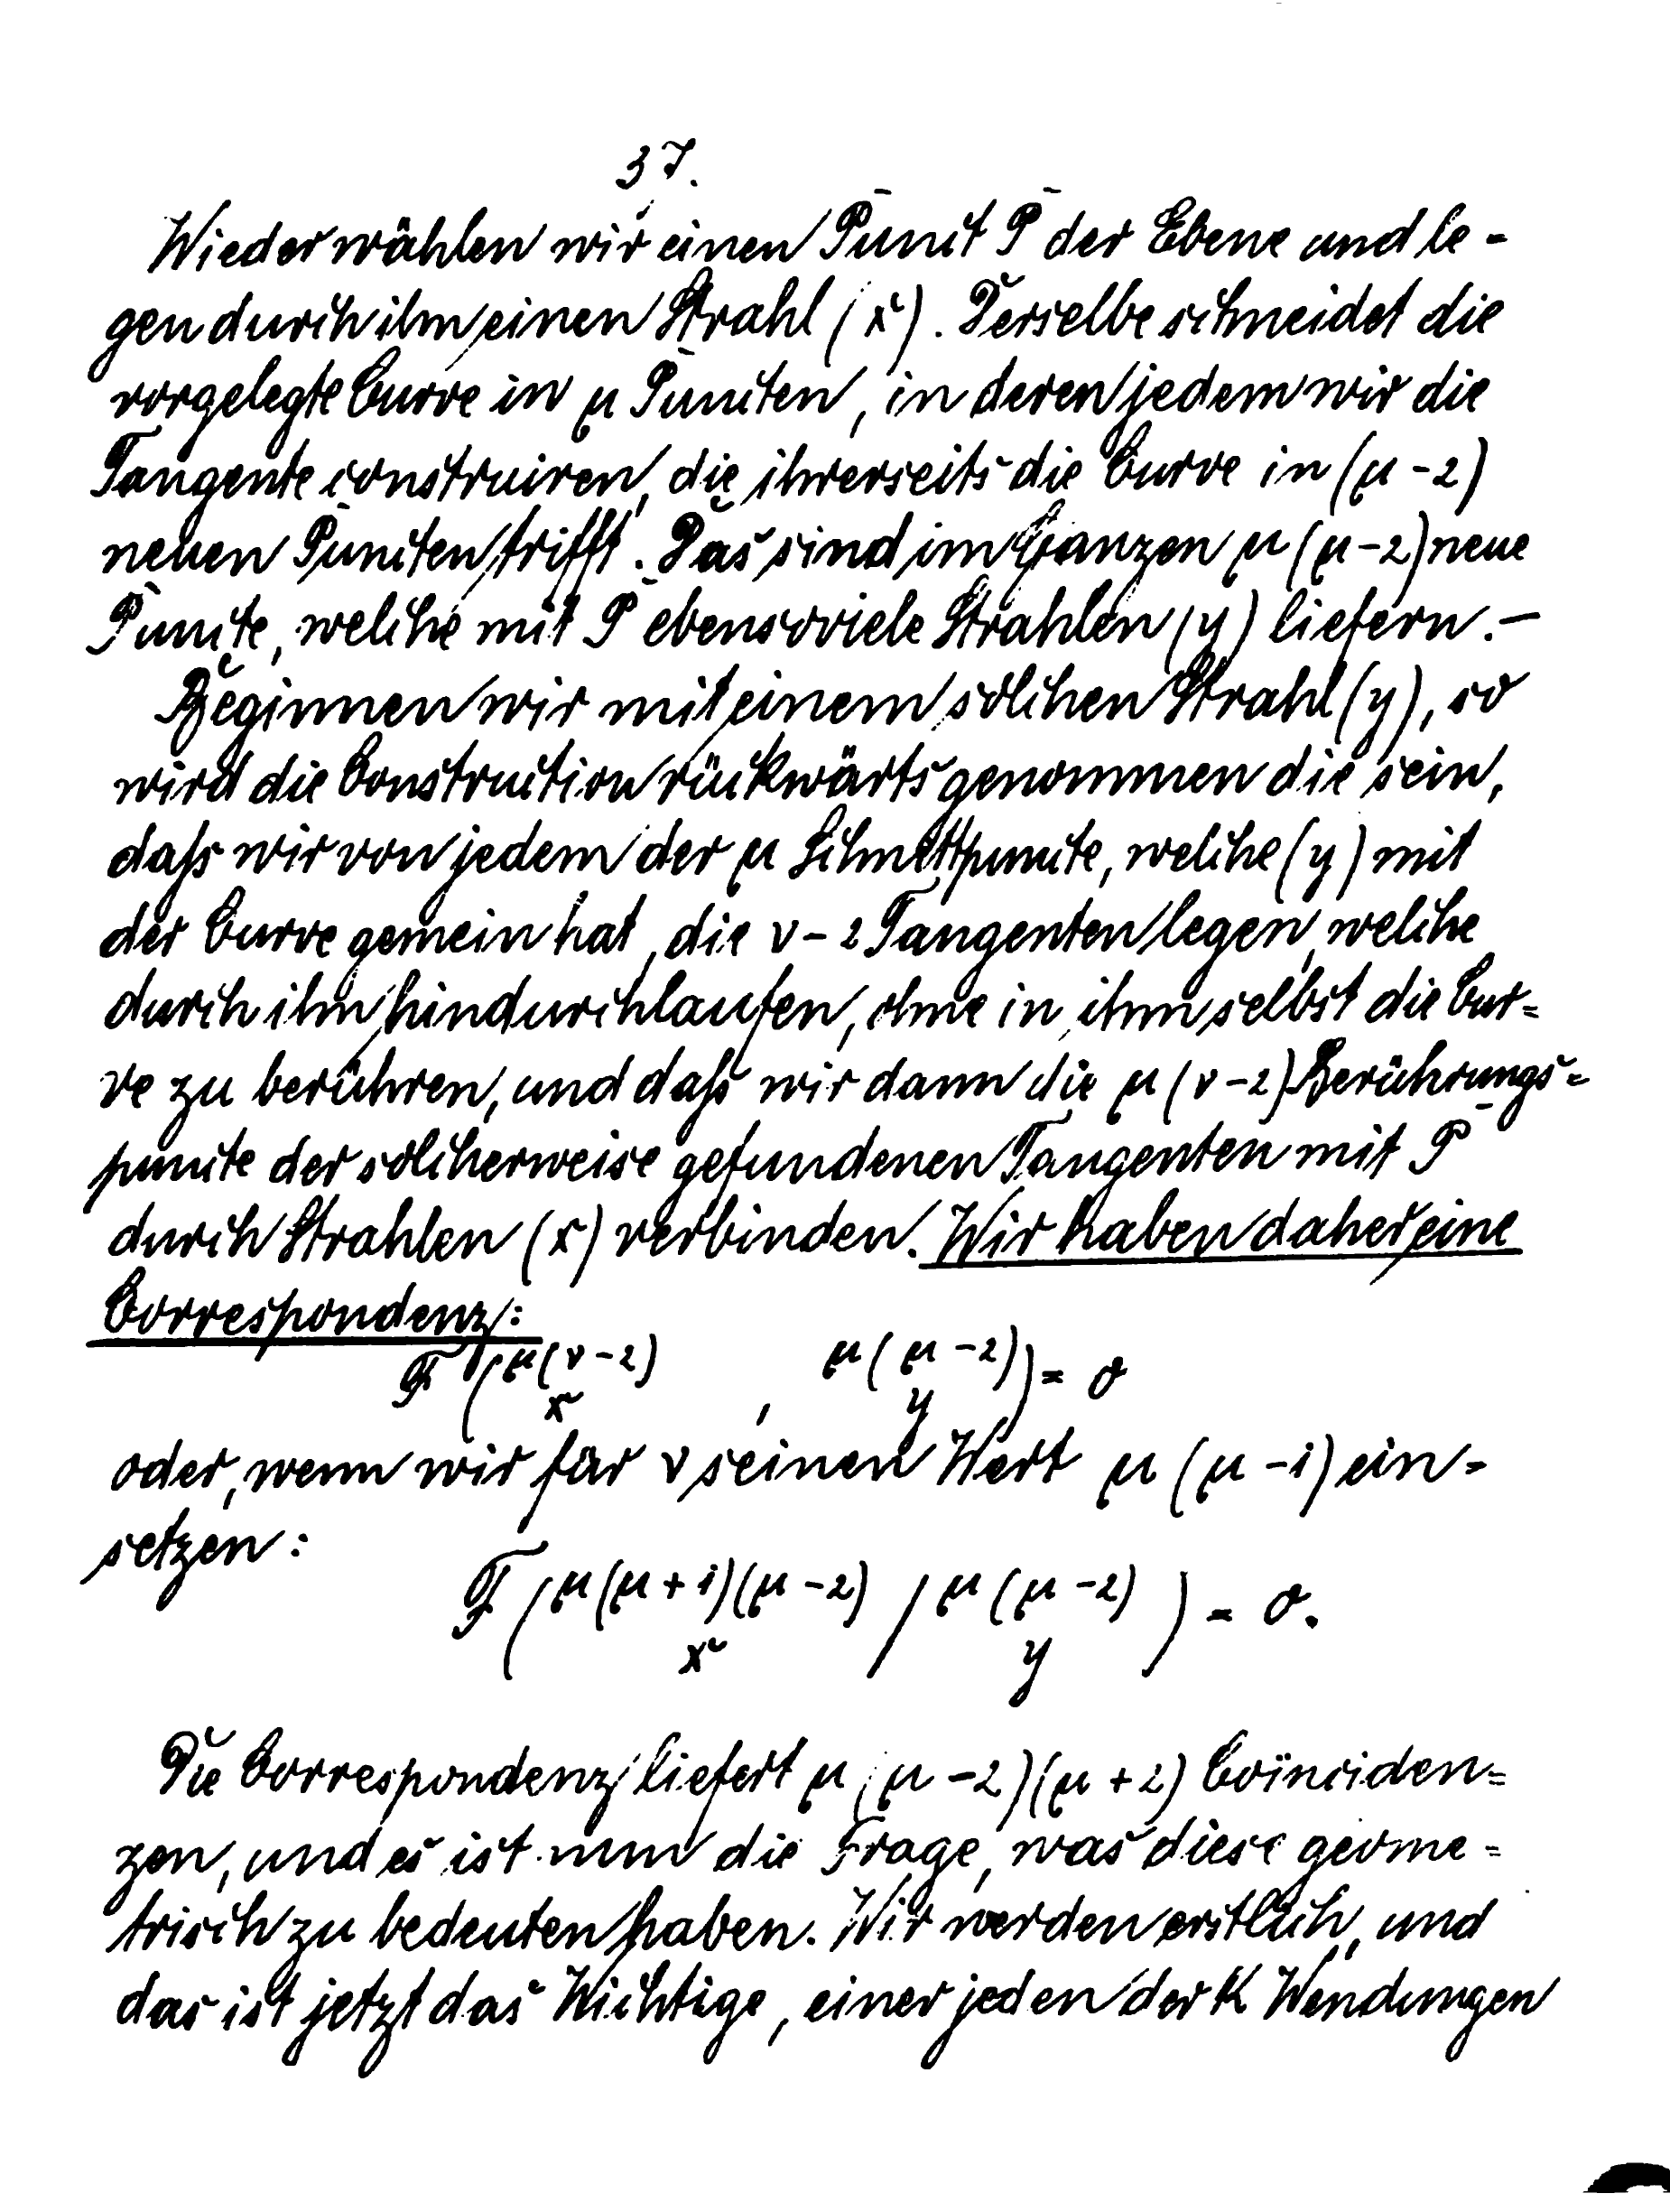 37.
Wieder wählen wir einen Punct P der Ebene und le-
gen durch ihn einen Strahl (x). Derselbe schneidet die
vorgelegte Curve in μ Puncten, in deren jedem wir die
Tangente construiren, die ihrerseits die Curve in (μ-2)
neuen Puncten trifft. Das sind im Ganzen μ(μ-2) neue
Puncte, welche mit P ebensoviele Strahlen (y) liefern.—
Beginnen wir mit einem solchen Strahl (y), so
wird die Construction rückwärts genommen die sein,
daß wir von jedem der μ Schnittpuncte, welche (y) mit
der Curve gemein hat, die ν-2 Tangenten legen, welche
durch ihn hindurchlaufen, ohne in ihm selbst die Cur=
ve zu berühren, und daß wir dann die μ(ν-2) Berührungs=
puncte der solcherweise gefundenen Tangenten mit P
durch Strahlen (x) verbinden. Wir haben daher eine
Correspondenz:
F(μ(ν-2) x, μ(μ-2) y) = 0
oder, wenn wir für ν seinen Wert μ(μ-1) ein=
setzen:
F(μ(μ+1)(μ-2) x / μ(μ-2) y) = 0.
Die Correspondenz liefert μ(μ-2)(μ+2) Coïnciden=
zen, und es ist nun die Frage, was diese geome=
trisch zu bedeuten haben. Wir werden erstlich, und
das ist jetzt das Wichtige, einer jeden der K Wendungen